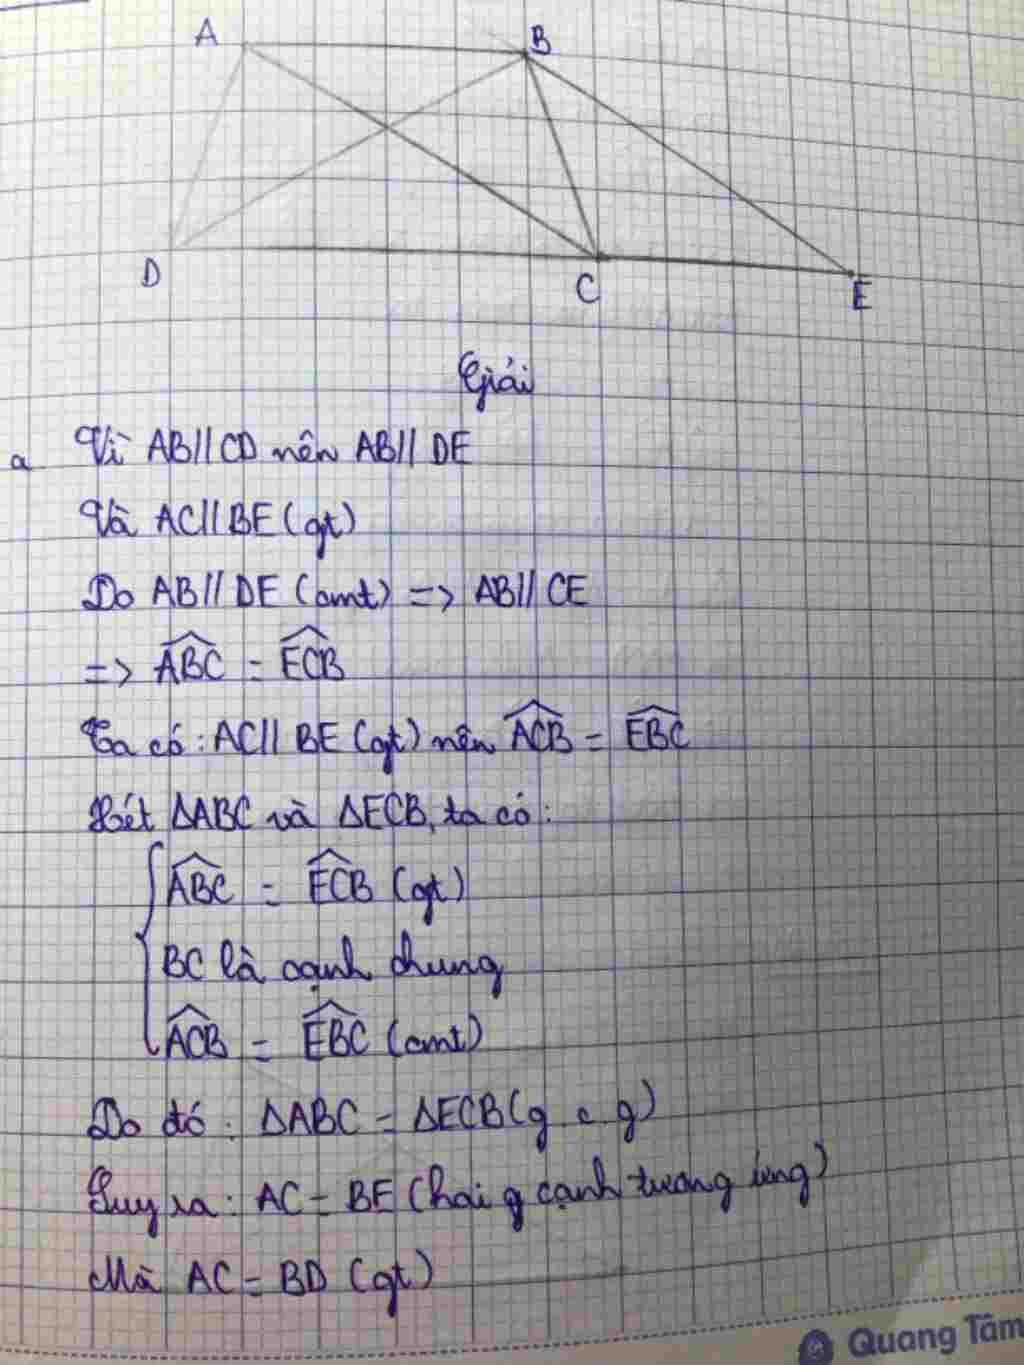 A
B
D
C
E
Giải
a Vì AB // CD nên AB // DE
Và AC // BE (gt)
Do AB // DE (cmt) => AB // CE
=> \widehat{ABC} = \widehat{ECB}
Ta có : AC // BE (gt) nên \widehat{ACB} = \widehat{EBC}
Xét ΔABC và ΔECB, ta có :
\widehat{ABC} = \widehat{ECB} (gt)
BC là cạnh chung
\widehat{ACB} = \widehat{EBC} (cmt)
Do đó : ΔABC = ΔECB (g c g)
Suy ra : AC = BE (hai g cạnh tương ứng)
Mà AC = BD (gt)
Quang Tâm